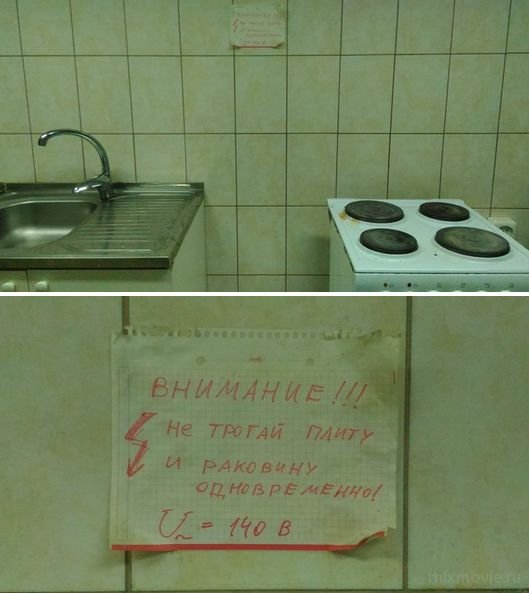 ВНИМАНИЕ!!!
НЕ ТРОГАЙ ПЛИТУ
И РАКОВИНУ
ОДНОВРЕМЕННО!
U~ = 140 В
mixmovie.ru